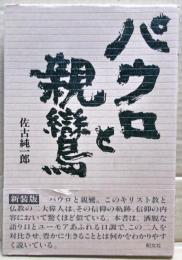 パウロと
親鸞
佐古純一郎
新装版
パウロと親鸞。このキリスト教と
仏教の二大偉人は、その信仰の軌跡、信仰の内
容において驚くほど似ている。本書は、洒脱な
語り口とユーモアあふれる口調で、この二人を
対比させ、豊かに生きることとは何かをわかりやす
く説いている。
朝文社